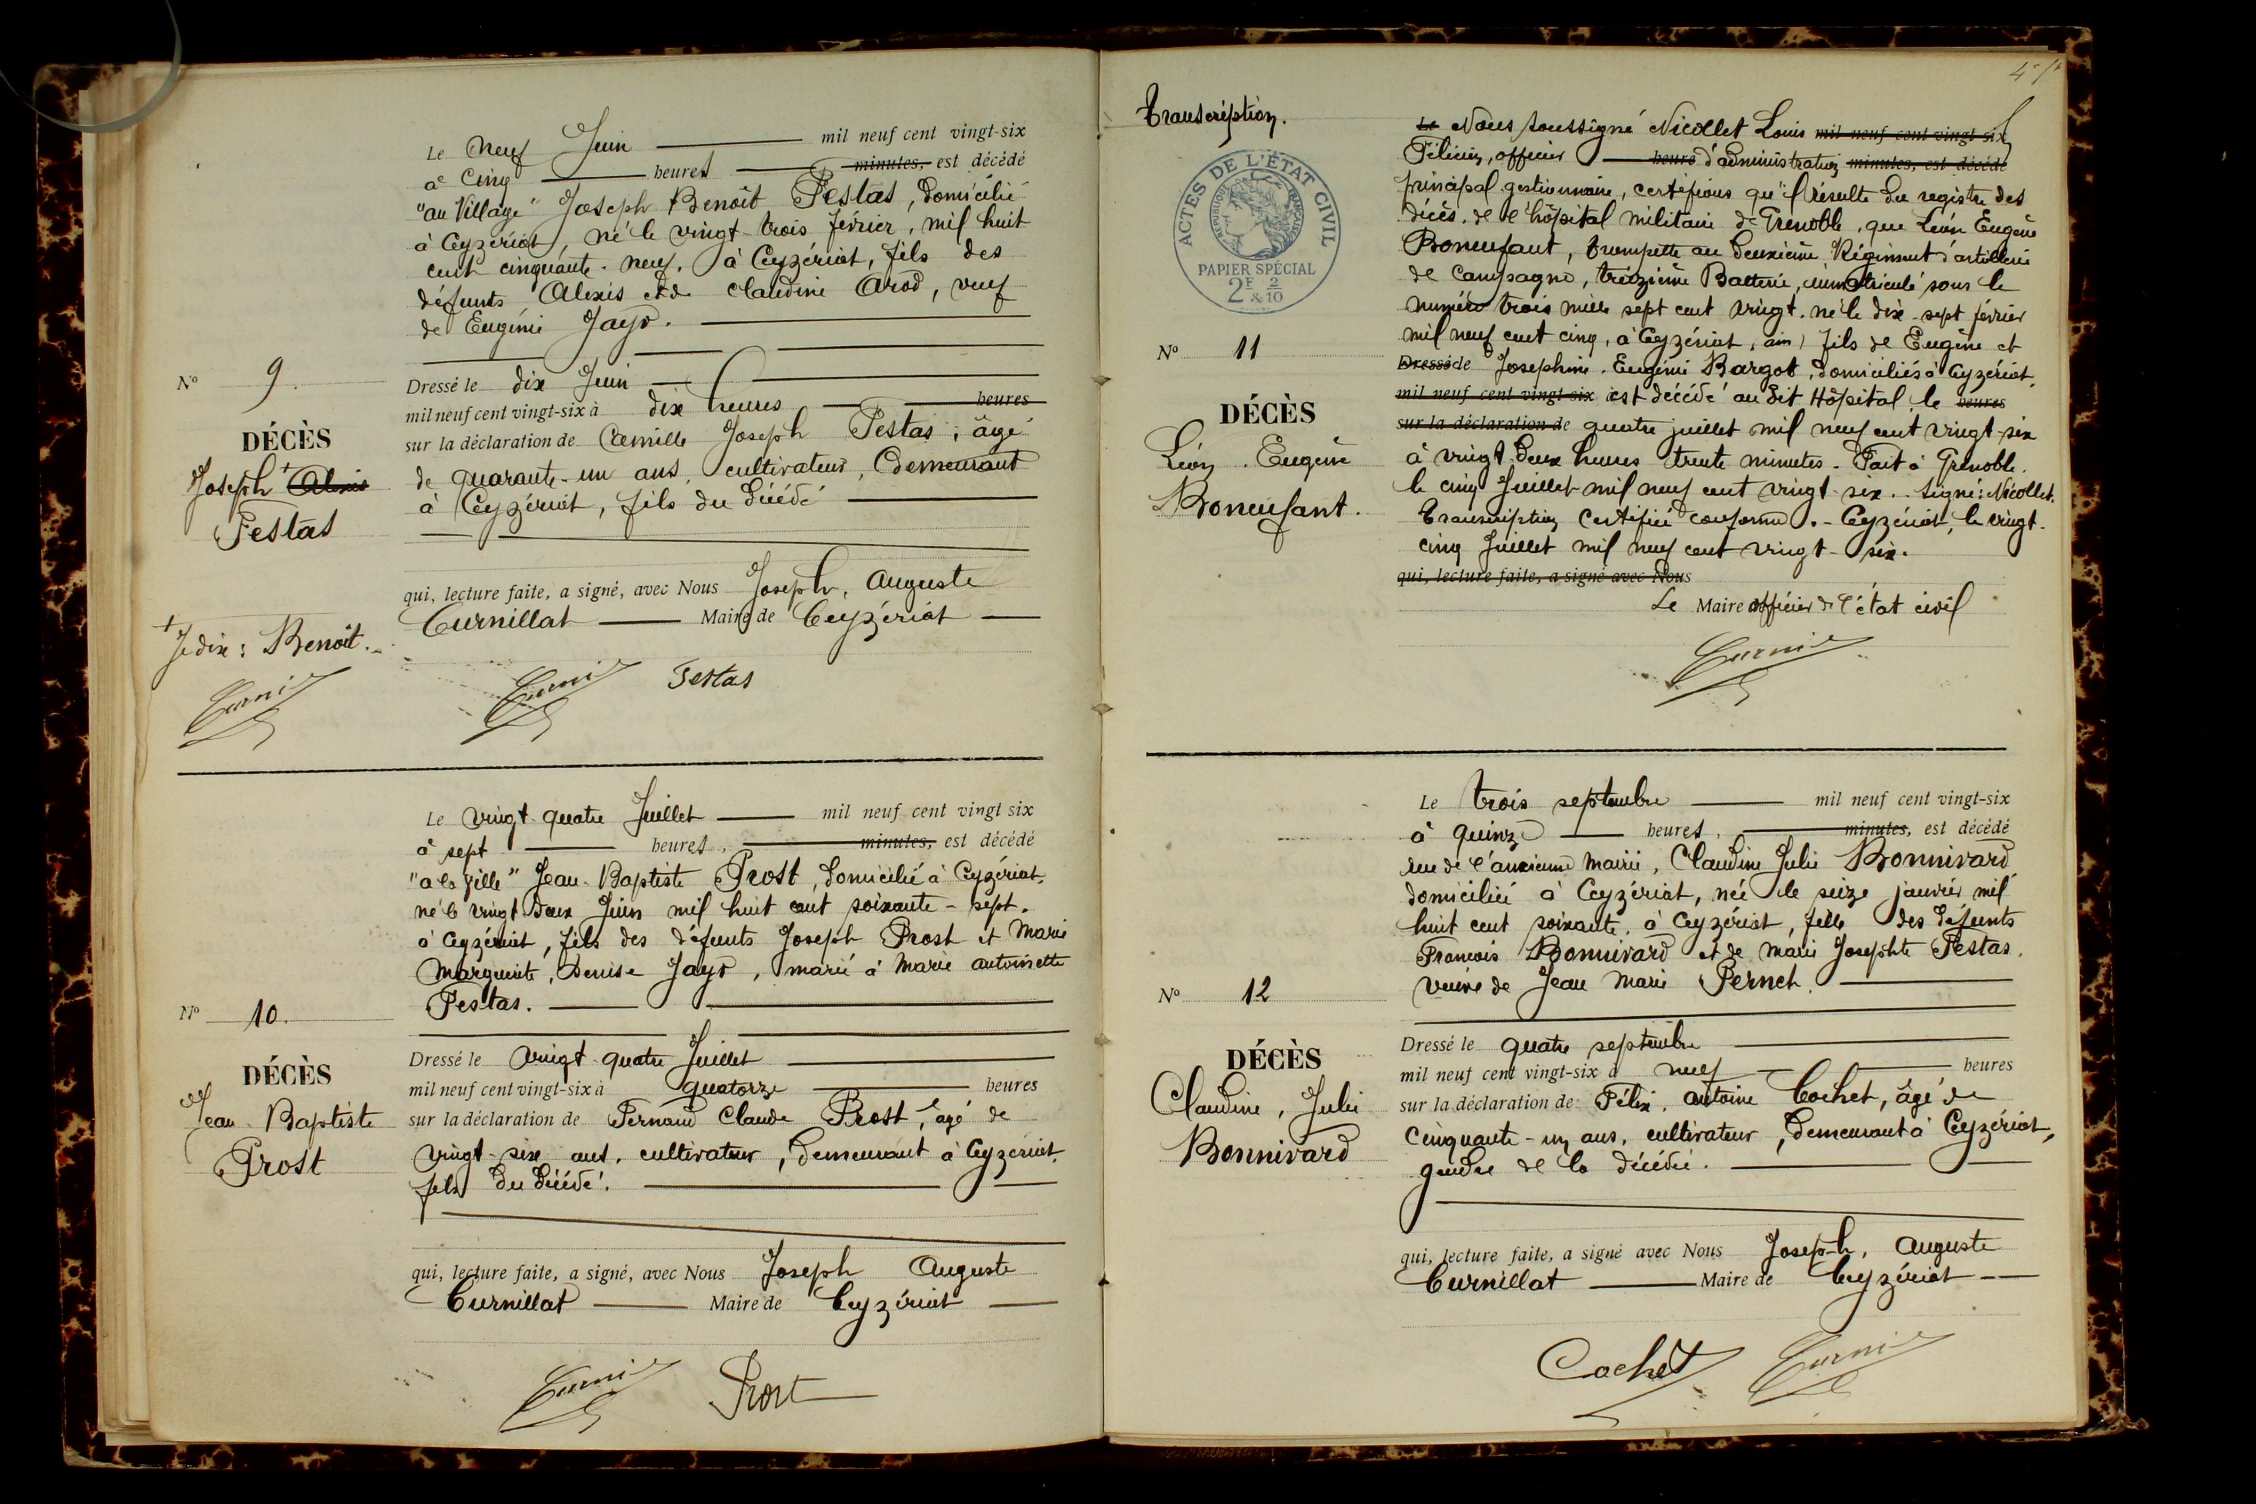 Le neuf Juin mil neuf cent vingt-six
à Cinq heures minutes, est décédé
"au Village" Joseph Benoît Festas, domicilié
à Ceyzériat, né le vingt trois février, mil huit
cent cinquante-neuf, à Ceyzériat, fils des
défunts Alexis et de Claudine Arod, veuf
de Eugénie Jayr.
N° 9.
DÉCÈS
Joseph + Alexis
Festas
Dressé le dix Juin
mil neuf cent vingt-six à dix heures heures
sur la déclaration de Camille Joseph Festas, âgé
de quarante-un ans, cultivateur, demeurant
à Ceyzériat, fils du décédé
qui, lecture faite, a signé, avec Nous Joseph, Auguste
Curnillat Maire de Ceyzériat
+ Je dix : Benoît.
Festas
Le vingt quatre Juillet mil neuf cent vingt six
à sept heures, minutes, est décédé
"a la ville" Jean-Baptiste Prost, domicilié à Ceyzériat,
né le vingt deux Juin mil huit cent soixante-sept,
à Ceyzériat, fils des défunts Joseph Prost et Marie
Marguerite, Denise Jayr, marié à Marie antoinette
Festas.
N° 10.
DÉCÈS
Jean-Baptiste
Prost
Dressé le vingt quatre Juillet
mil neuf cent vingt-six à quatorze heures
sur la déclaration de Fernand Claude Prost, âgé de
vingt-six ans, cultivateur, demeurant à Ceyzériat,
fils du décédé.
qui, lecture faite, a signé, avec Nous Joseph Auguste
Curnillat Maire de Ceyzériat
Prost
Transcription.
ACTES DE L'ÉTAT CIVIL
RÉPUBLIQUE FRANÇAISE
PAPIER SPÉCIAL
2F & 2/10
N° 11
DÉCÈS
Léon Eugène
Bonenfant.
Le Nous soussigné Nicollet Louis mil neuf cent vingt-six
Félicien, officier heure d'administration minutes, est décédé
principal gestionnaire, certifions qu'il résulte du registre des
décès de l'hôpital militaire de Grenoble, que Léon Eugène
Bonenfant, trompette au deuxième Régiment d'artillerie
de Campagne, treizième Batterie, immatriculé sous le
numéro trois mille sept cent vingt, né le dix-sept février
mil neuf cent cinq, à Ceyzériat, ain, fils de Eugène et
Dressé de Joséphine Eugénie Bargot, domiciliés à Ceyzériat,
mil neuf cent vingt-six est décédé au dit Hôpital, le heures
sur la déclaration de quatre juillet mil neuf cent vingt-six
à vingt deux heures trente minutes. Fait à Grenoble.
le cinq Juillet mil neuf cent vingt-six. Signé: Nicollet.
Transcription Certifiée conforme. - Ceyzériat, le vingt-
cinq Juillet mil neuf cent vingt-six.
qui, lecture faite, a signé avec Nous
Le Maire officier de l'état civil
Le trois septembre mil neuf cent vingt-six
à quinze heures, minutes, est décédé
rue de l'ancienne mairie, Claudine Julie Bonnivard
domiciliée à Ceyzériat, née le seize janvier mil
huit cent soixante, à Ceyzériat, fille des défunts
François Bonnivard et de Marie Josephte Festas,
veuve de Jean Marie Pernet.
N° 12
DÉCÈS
Claudine, Julie
Bonnivard
Dressé le quatre septembre
mil neuf cent vingt-six à neuf heures
sur la déclaration de Félix, antoine Cochet, âgé de
cinquante-un ans, cultivateur, demeurant à Ceyzériat,
gendre de la décédée.
qui, lecture faite, a signé avec Nous Joseph, Auguste
Curnillat Maire de Ceyzériat
Cochet